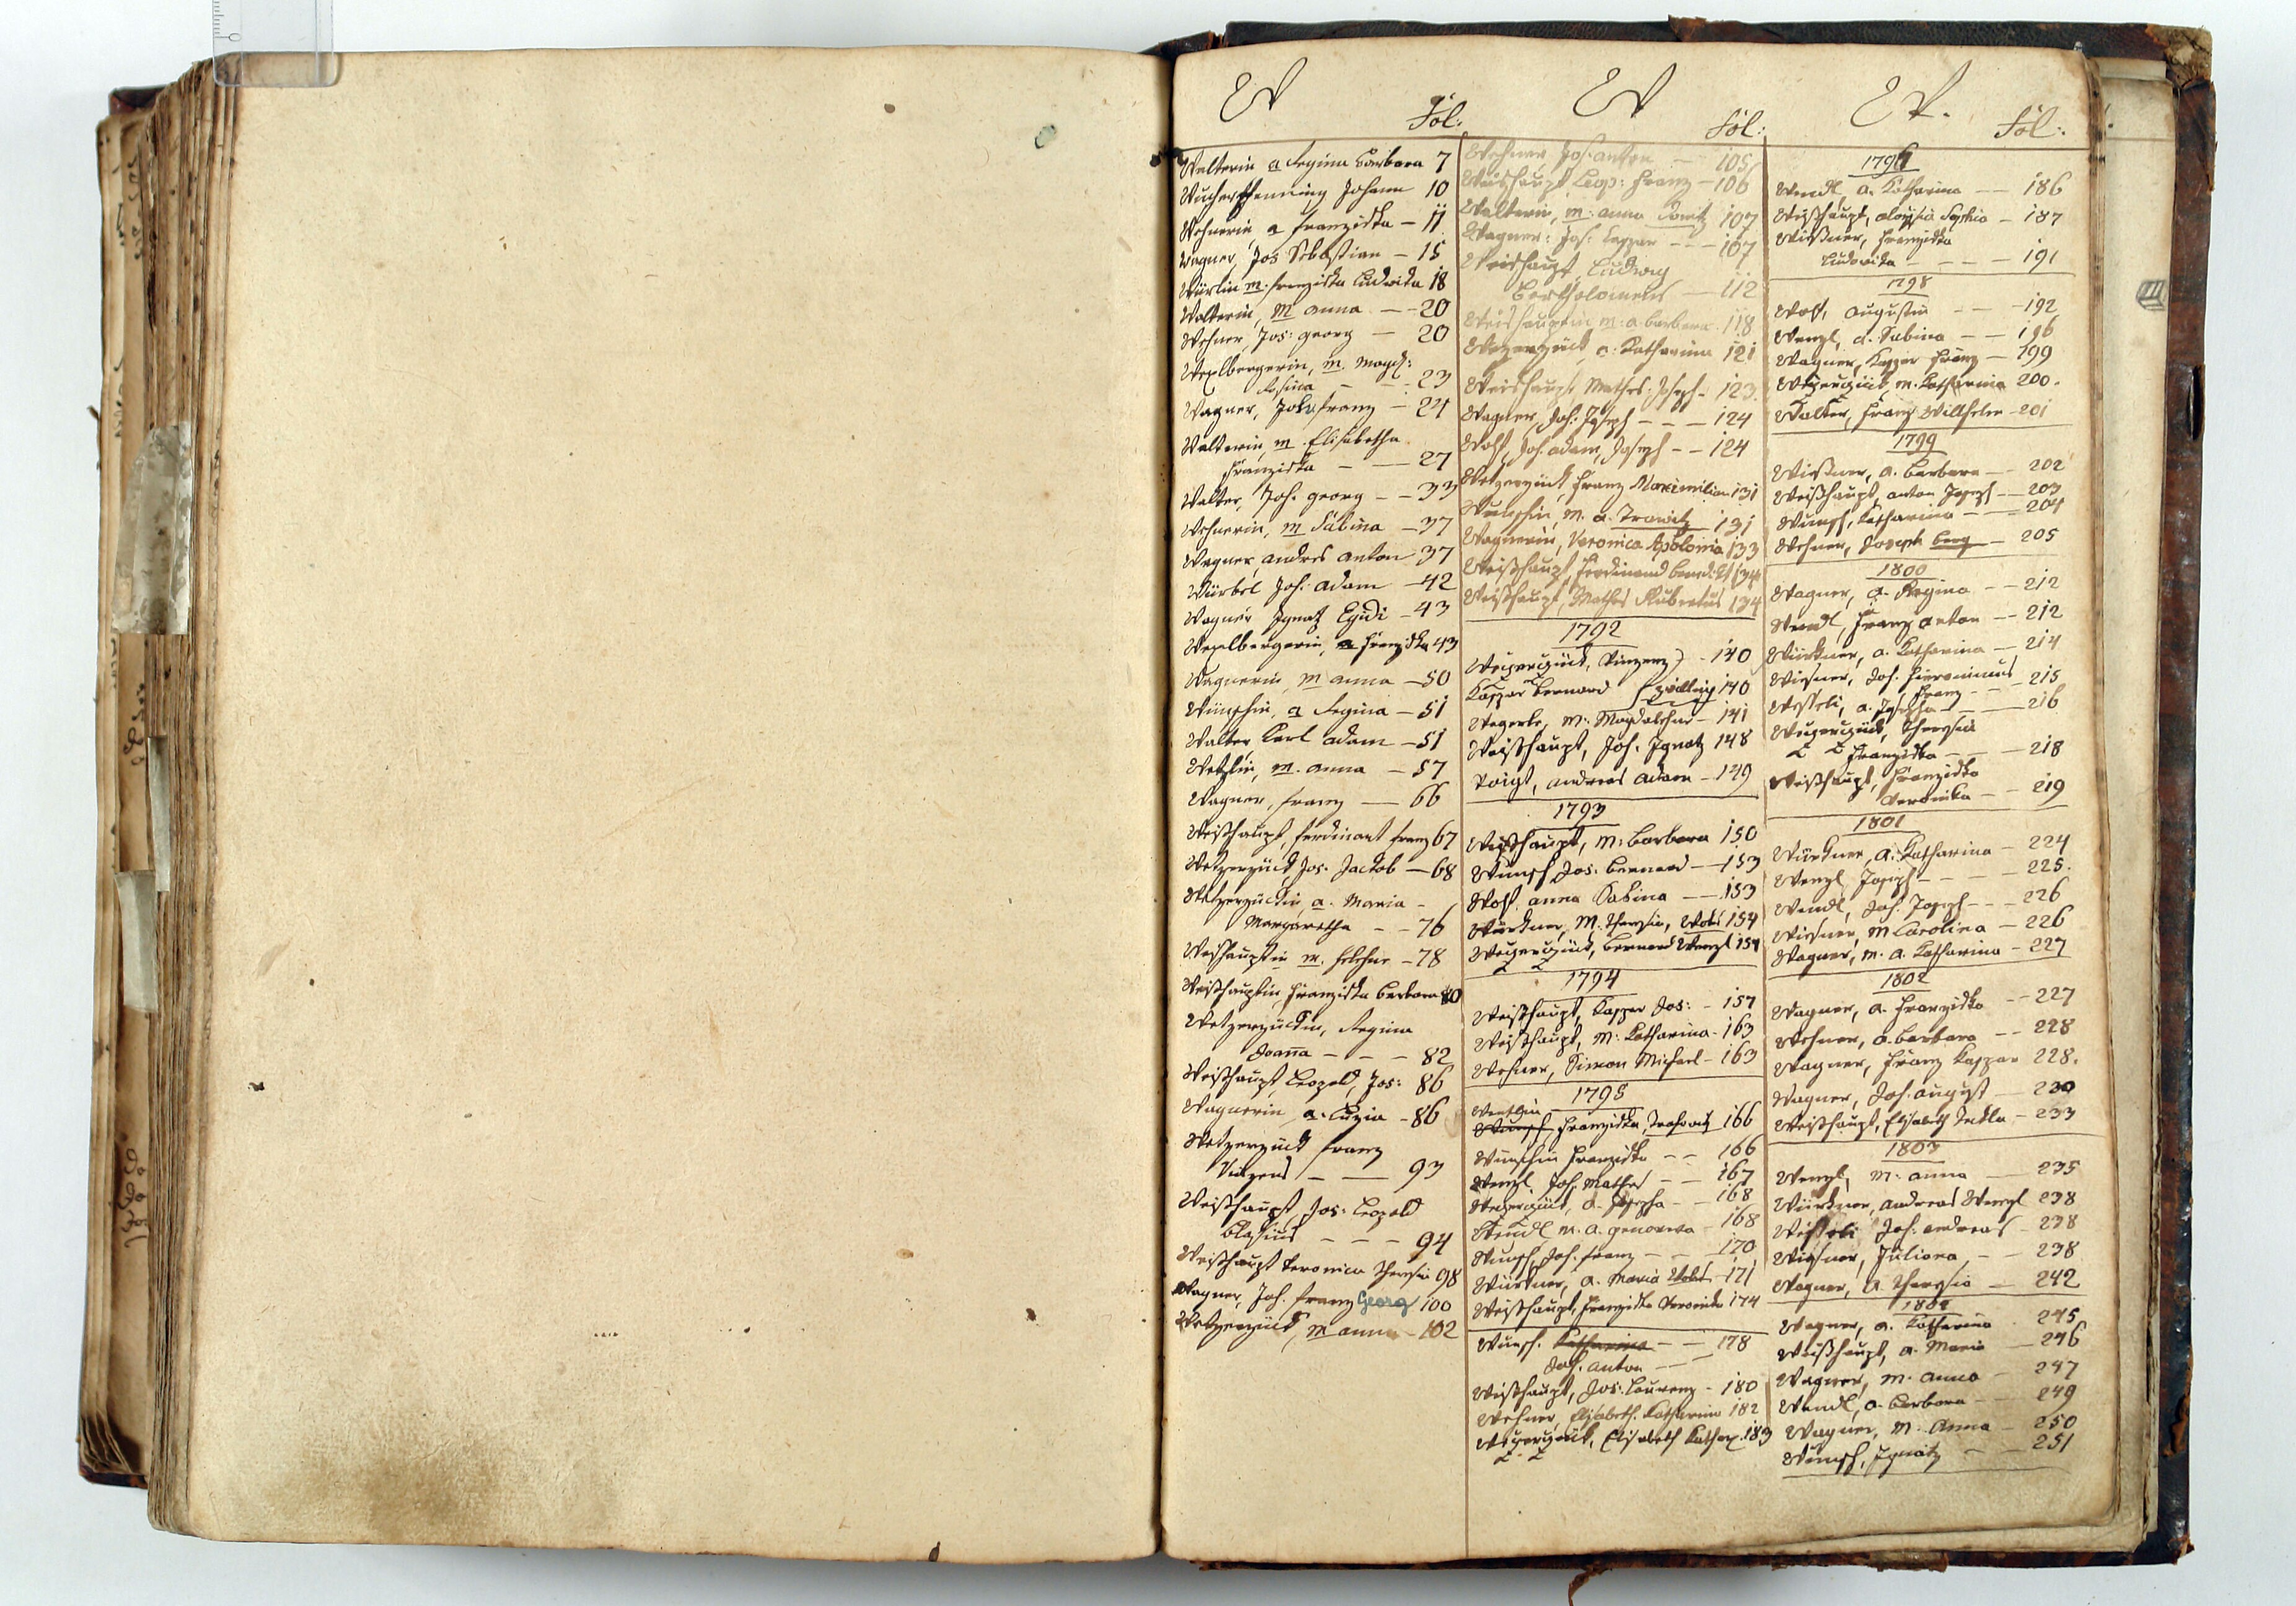 W
Fol:
Walterin a Regina Barbara 7
Johann 10
Wehnerin, a Franziska – 11
Wagner, Jos Sebastian – 15
Würlin m. Franziska Ludwika 18
Walterin, M anna – – 20
Wehner, Jos: georg – 20
Wexlbergerin, m. Magd:
Rosina – – 23
Wagner, Joh: franz – 24
Walterin, m. Elisabetha
Franziska – – 27
Walter, Joh. georg – – 33
Wehnerin, m Sabina – 37
Wagner, andres anton 37
Würbel Joh: Adam – 42
Wagner Ignatz Egidi – 43
Wexelbergerin, a Franziska 43
Wagnerin, m anna – 50
Wünschin, a Regina – 51
Walter Karl adam – 51
m. anna – 57
Wagner, Franz – 66
Weißhaupt, ferdinant franz 67
Wetzerzückh Jos. Jackob – 68
Wetzerzückin, a. Maria –
Margaretha – – 76
Weishauptin m. Helehne – 78
Weißhauptin Franziska Barbara 80
Wetzerzückin, Regina
Joaña – – – 82
Weißhaupt Leopold, Jos: 86
Wagnerin, a. Luzia – 86
Wetzerzückh franz
Vinzens – – 93
Weißhaupt, Jos: Leopold
Blasius – – – 94
Weißhaupt Veronica Theresia 98
Wagner, Joh. franz Georg 100
Wetzerzückh, m anna – 102
W
Fol:
Wehner Jos: anton – 105
Weishaupt Leop: Franz – 106
Walterin, m: anna 107
Wagner: Jos: Caspar – – – 107
Weishaupt Ludwig
Bartholomeus – 112
Weishauptin m: a. Barbara 118
Wezerzückh a. Katharina 121
Weishaupt, Mathes: Joseph – 123
Wagner, Joh: Joseph – – – 124
Wohl, Joh. adam, Joseph – – 124
Wetzerzückh, Franz Maximilian 131
Wünschin, M. a. 131
Wagnerin, Veronica Apolonia 133
Weißhaupt Ferdinand Bened: 134
Weißhaupt, Mathes 134
1792
Wezerzückh, Vinzenz – 140
Kaspar Bernard Zwilling 140
M: Magdalehne – 141
Weißhaupt, Joh. Ignatz 148
Voigt, andreas adam – 149
1793
Weißhaupt, M: Barbara 150
Wunsch Jos: Bernard – 153
Wohl, anna Sabina – – 153
Würkner, M. Theresia, 154
Wezerzückh, Bernard Wenzl 154
1794
Weißhaupt, Kaspar Jos: – 157
Weißhaupt, M: Katharina – 163
Wehner, Simon Michael – 163
1795
Wunsch Franziska, 166
Wünschin Franziska – – 166
Wenzl Joh. Mathes – – 167
Wezerzückh, a. Josepha – – 168
Wendl m. a. genoveva – 168
Wunsch, Joh. franz – – – 170
Würkner, a. Maria 171
Weißhaupt, Franziska Veronika 174
Wunsch. Katharina – – 178
Joh. anton – –
Weißhaupt, Jos: Laurenz – 180
Wehner, Elisabeth. Katharina 182
Wezerzückh, Elisabeth Kathar. 183
W.
Fol:
1796
Wendl, a. Katharina – – 186
Weißhaupt, aloysia Sophia – 187
Wießner, Franziska
Ludovika – – – 191
1798
Wohl, Augustin – – 192
Wenzl, a. Sabina – – 196
Wagner, Kaspar Franz – 199
Wezerzückh, m. Katharina 200.
Walter, Franz Willhelm – 201
1799
Wießner, a. Barbara – – 202
Weißhaupt, anton Joseph – 203
Wunsch, Katharina – – 204
Wehner, Joseph 205
1800
Wagner, a. Regina – – 212
Wendl, Franz anton – – 212
Würkner, a. Katharina – 214
Wießner, Joh. Hieronimus
Franz – – 215
a. Josepha – – 216
Wezerzückh, Theresia
Franziska – – – 218
Weißhaupt, Franziska
Veronika – – 219
1801
Würkner, a. Katharina – 224
Wenzl Joseph – – – – 225.
Wendl, Joh. Joseph – – – 226
Wießner, M Carolina – 226
Wagner, m. a. Katharina – 227
1802
Wagner, a. Franziska – – 227
Wehner, a. Barbara – – 228
Wagner, Franz Kaspar 228.
Wagner, Joh. august – 230
Weißhaupt, Elisabeth Tekla – 233
1803
Wenzl, M: anna – – 235
Würkner, andreas Wenzl 238
Joh. andreas – 238
Wießner, Juliana – – 238
Wagner, a. Theresia – 242
1804
Wagner, a. Katharina – 245
Weißhaupt, a. Maria – 246
Wagner, m. anna – 247
Wendl, a. Barbara – – 249
Wagner, M. Anna – 250
Wunsch, Ignatz – – 251